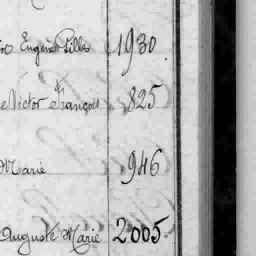 Eugène 1930
Victor François 825
Marie 946
Auguste Marie 2005